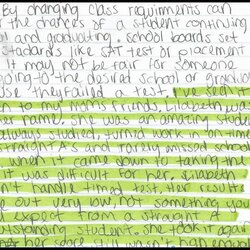 By changing class requirments can
the chances of a student continuing
and graduating. School boards set
standards like SAT test or placement
may not be fair for someone
going to the desired school or
use they failed a test. I've seen it
to my moms friends, Elizabeth was
her name. She was an amazing student
always studied, turned in work on time
straight As and rarely missed school
when it came down to taking the
it was difficult for her. Elizabeth
n't handle timed test. Her results
out very low, not something you
expect from a straight A
she took it again
her score still wasn't